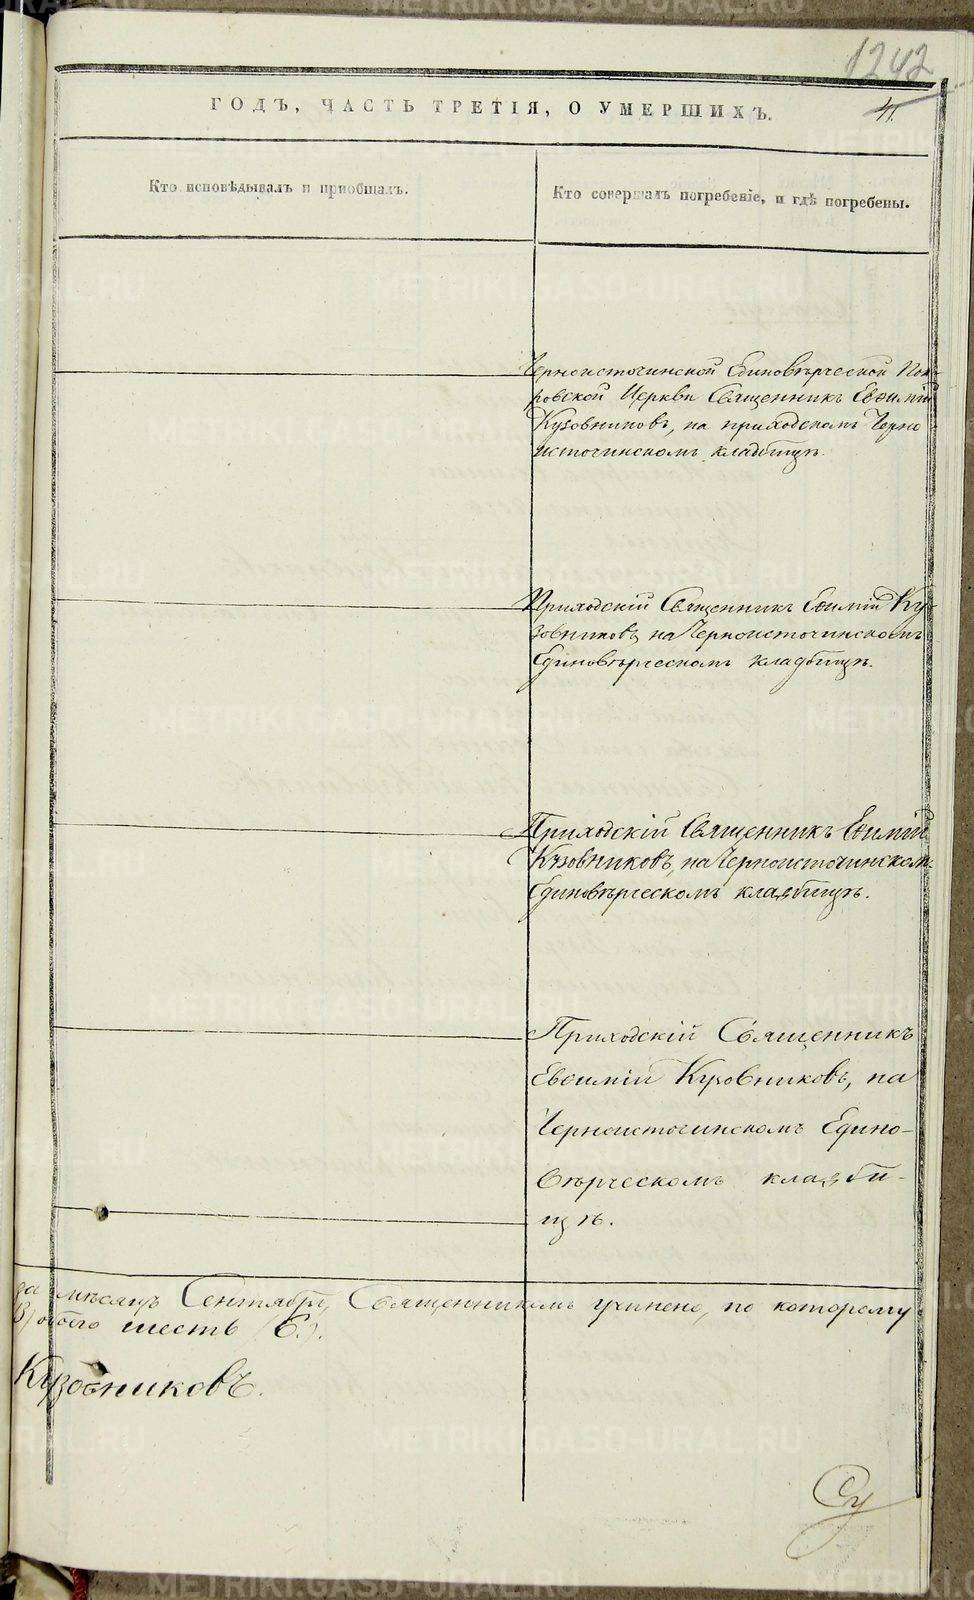 1242
41.
ГОДЪ, ЧАСТЬ ТРЕТІЯ, О УМЕРШИХЪ.
Кто исповѣдывалъ и пріобщалъ.
Кто совершалъ погребеніе, и гдѣ погребены.
Черноисточинской Единовѣрческой Пок-
ровской Церкви Священникъ Евѳимій
Кузовниковъ, на приходскомъ Черно
источинскомъ кладбищѣ.
Приходскій Священникъ Евѳимій Ку-
зовниковъ, на Черноисточинскомъ
Единовѣрческомъ кладбищѣ.
Приходскій Священникъ Евѳимій
Кузовниковъ, на Черноисточинском
Единовѣрческомъ кладбищѣ.
Приходскій Священникъ
Евѳимій Кузовниковъ, на
Черноисточинскомъ Едино-
вѣрческомъ кладби-
щѣ.
за мѣсяцъ Сентябрь, Священникомъ учинено, по которому
обоего шесть (6.).
Кузовниковъ.
METRIKI.GASO-URAL.RU